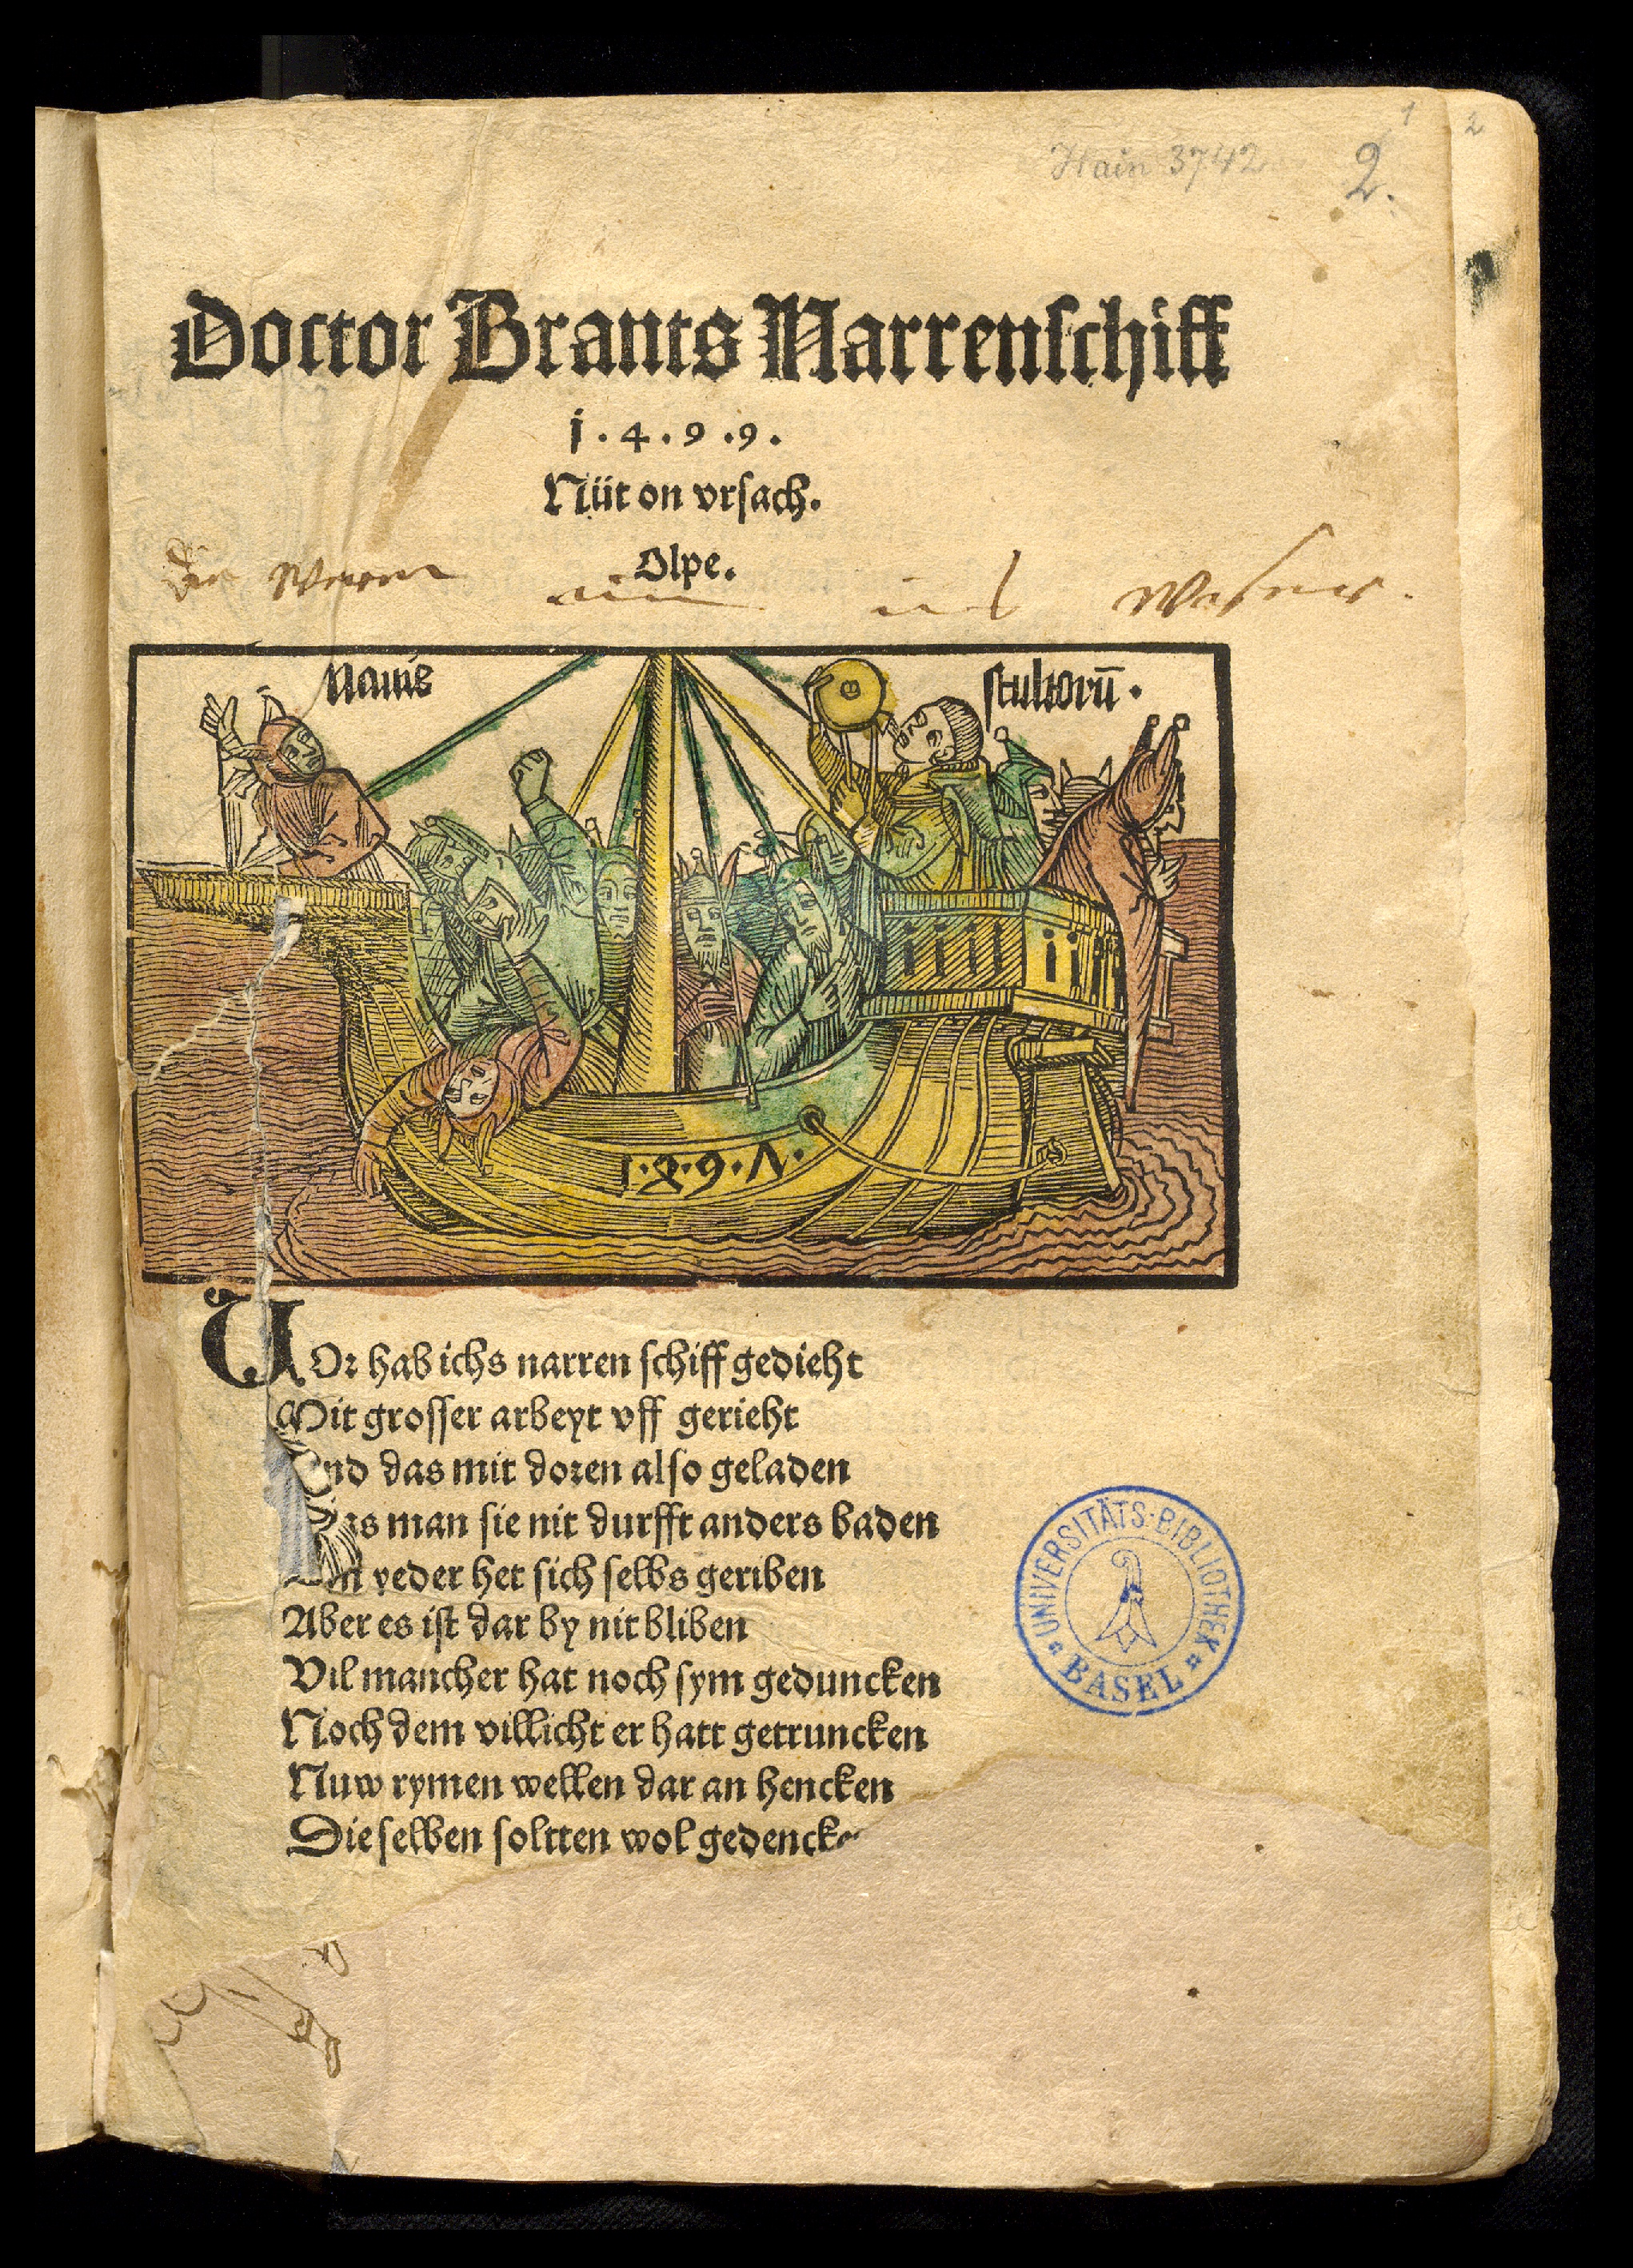 1 2
Hain 3742 2.
Doctor Brants Narrenſchiff
1.4.9.9.
Nüt on vrſach.
Olpe.
Nauis ſtultorū.
1.4.9.Λ.
VOr hab ichs narren ſchiff gedieht
Mit groſſer arbeyt vff gerieht
Vnd das mit doren alſo geladen
Das man ſie nit durfft anders baden
Ein yeder het ſich ſelbs geriben
Aber es iſt dar by nit bliben
Vil mancher hat noch ſym geduncken
Noch dem villicht er hatt getruncken
Nuw rymen wellen dar an hencken
Die ſelben ſoltten wol gedencken
UNIVERSITÄTS-BIBLIOTHEK
BASEL